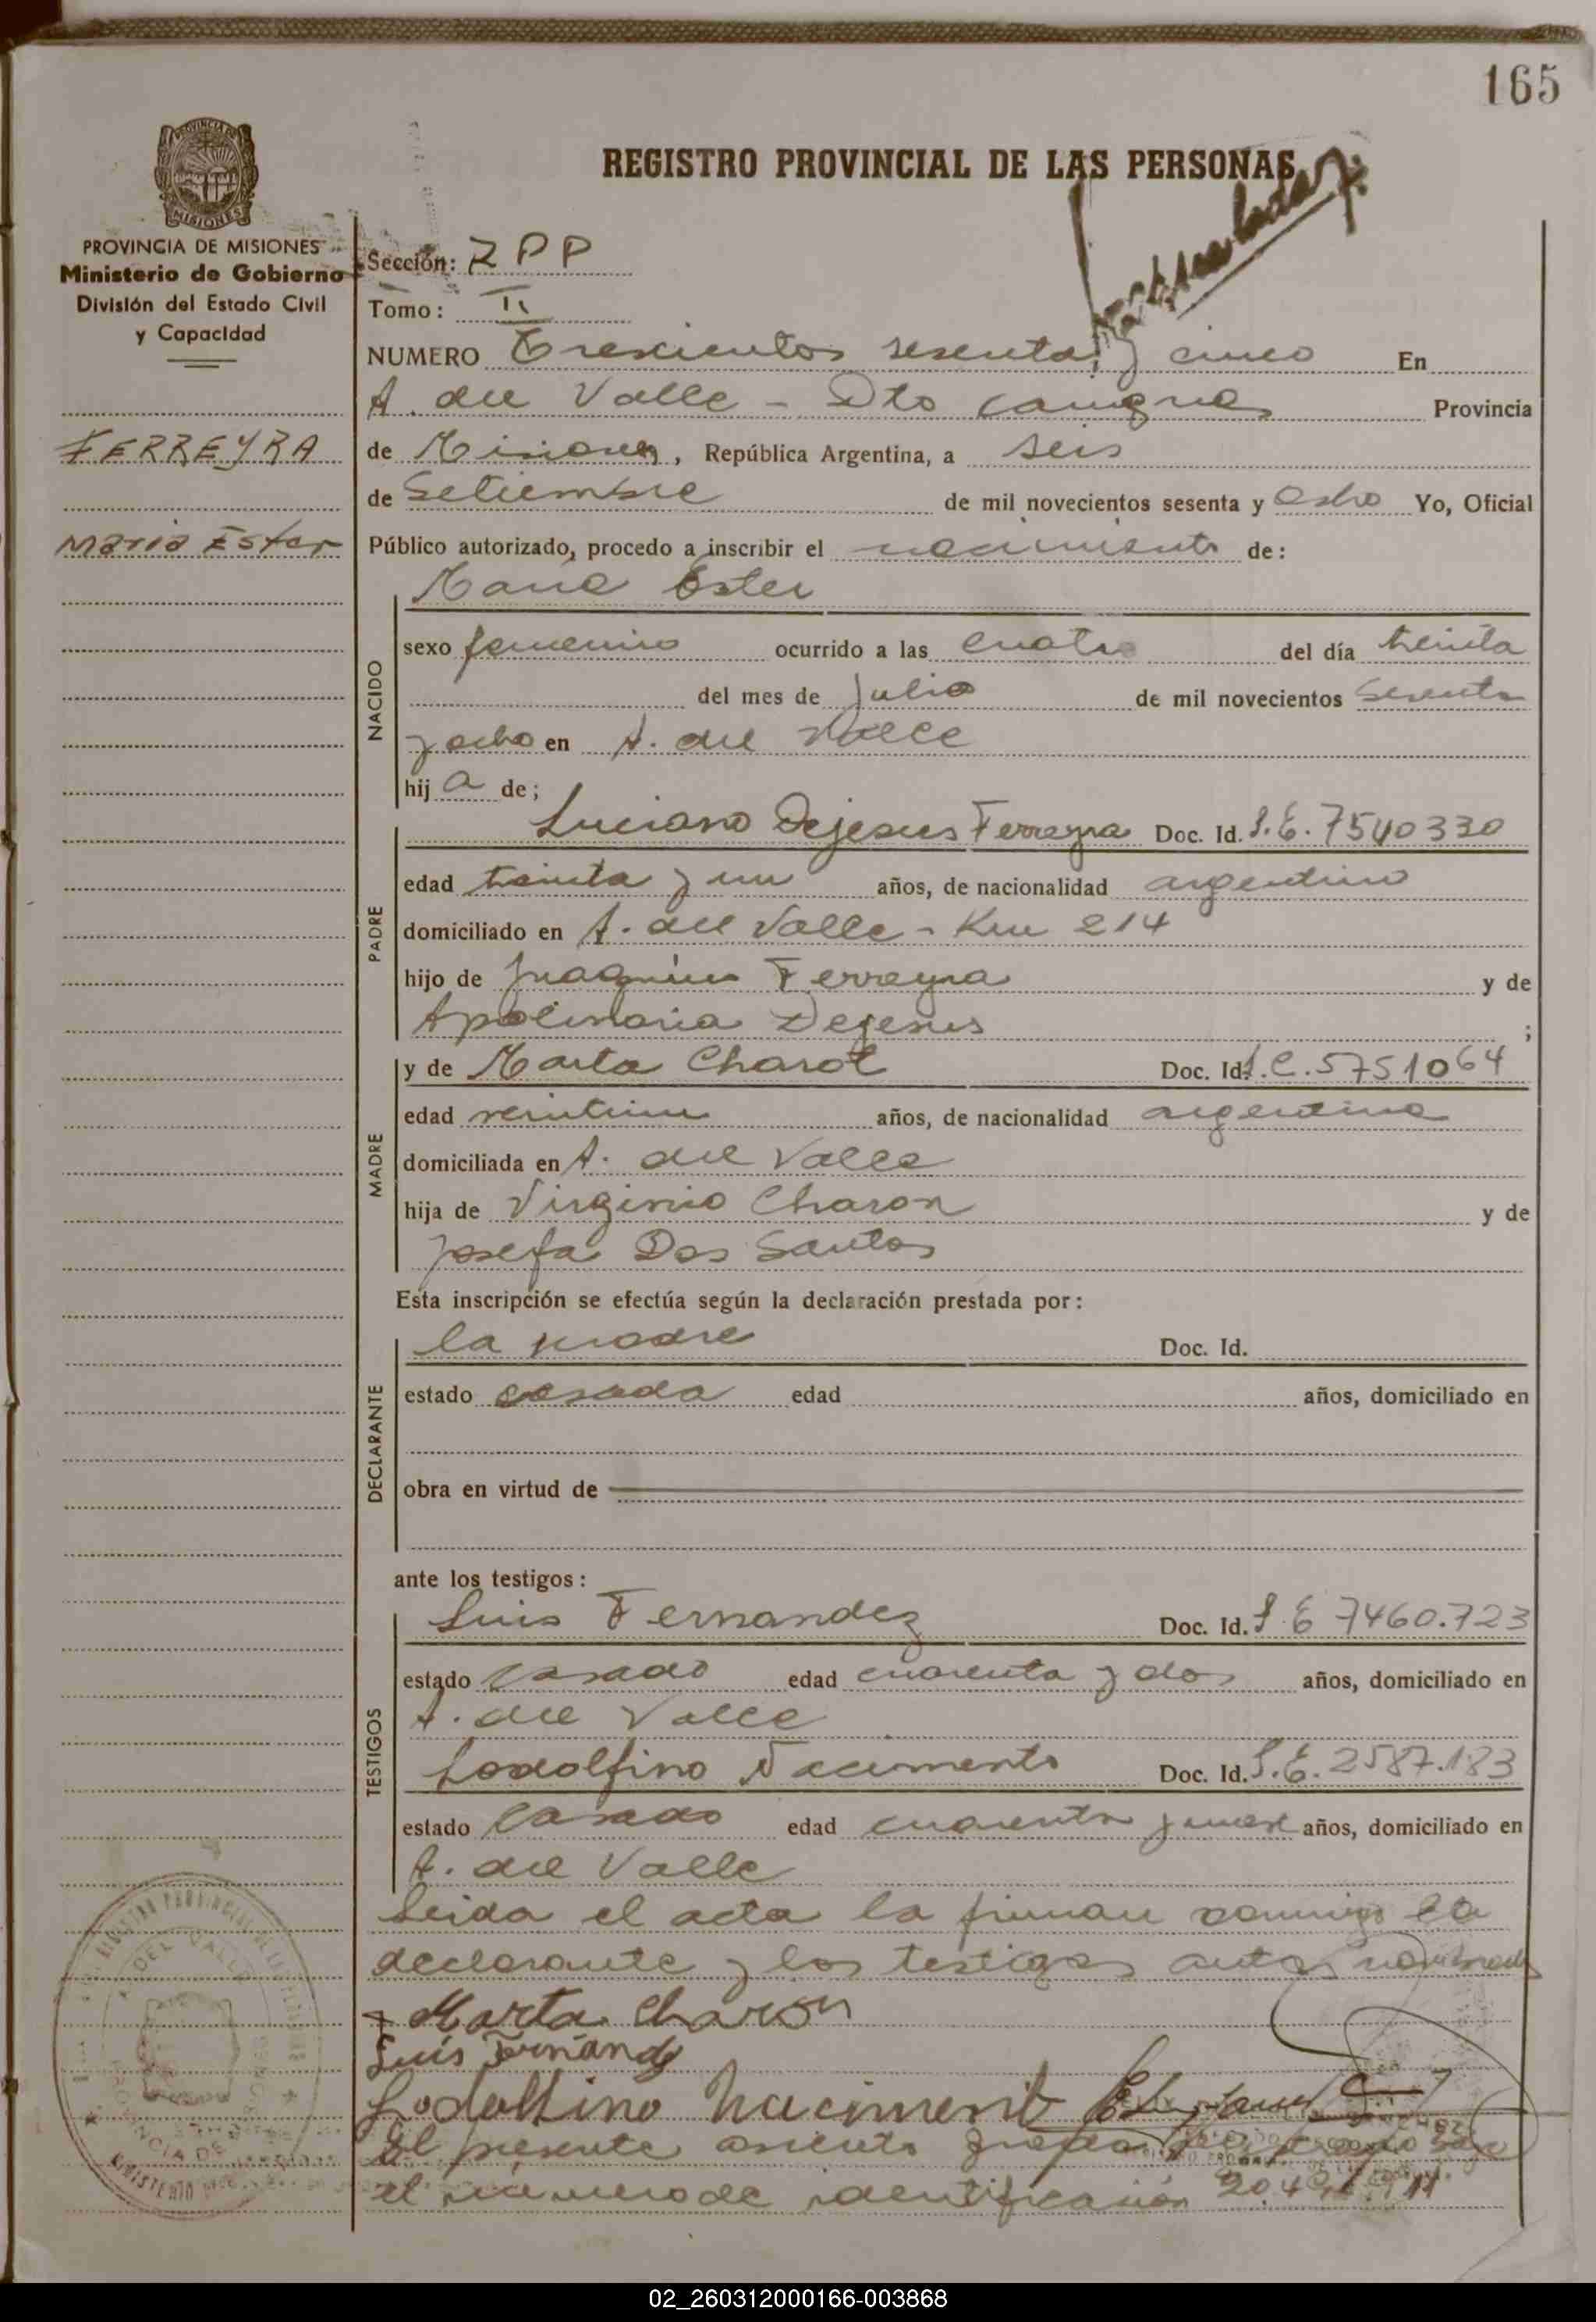 165
REGISTRO PROVINCIAL DE LAS PERSONAS
PROVINCIA DE MISIONES
Ministerio de Gobierno
División del Estado Civil
y Capacidad
FERREYRA
Maria Ester
Sección: RPP
Tomo: II
NUMERO Trescientos sesenta y cinco En
A. del Valle - Dto Cainguas Provincia
de Misiones, República Argentina, a seis
de Setiembre de mil novecientos sesenta y ocho Yo, Oficial
Público autorizado, procedo a inscribir el nacimiento de:
NACIDO
Maria Ester
sexo femenino ocurrido a las cuatro del día treinta
del mes de Julio de mil novecientos sesenta
y ocho en A. del Valle
hij a de;
PADRE
Luciano Dejesus Ferreyra Doc. Id. L.E. 7540330
edad treinta y un años, de nacionalidad argentino
domiciliado en A. del Valle - Km 214
hijo de Juaquin Ferreyra y de
Apolinaria Dejesus ;
MADRE
y de Marta Charot Doc. Id. L.C. 5751064
edad años, de nacionalidad argentina
domiciliada en A. del Valle
hija de Virginio Charon y de
Josefa Dos Santos
Esta inscripción se efectúa según la declaración prestada por:
DECLARANTE
la madre Doc. Id.
estado casada edad años, domiciliado en
obra en virtud de
ante los testigos:
TESTIGOS
Luis Fernandez Doc. Id. L E 7460.723
estado casado edad cuarenta y dos años, domiciliado en
A. del Valle
Lodolfino Nacimento Doc. Id. L.E. 2587.183
estado casado edad cuarenta y nueve años, domiciliado en
A. del Valle
Leida el acta la firman conmigo la
declarante y los testigos antes nombrados
Marta Charon
Luis Fernandez
Lodolfino Naciment
El presente asiento
el numero de identificación
02_260312000166-003868